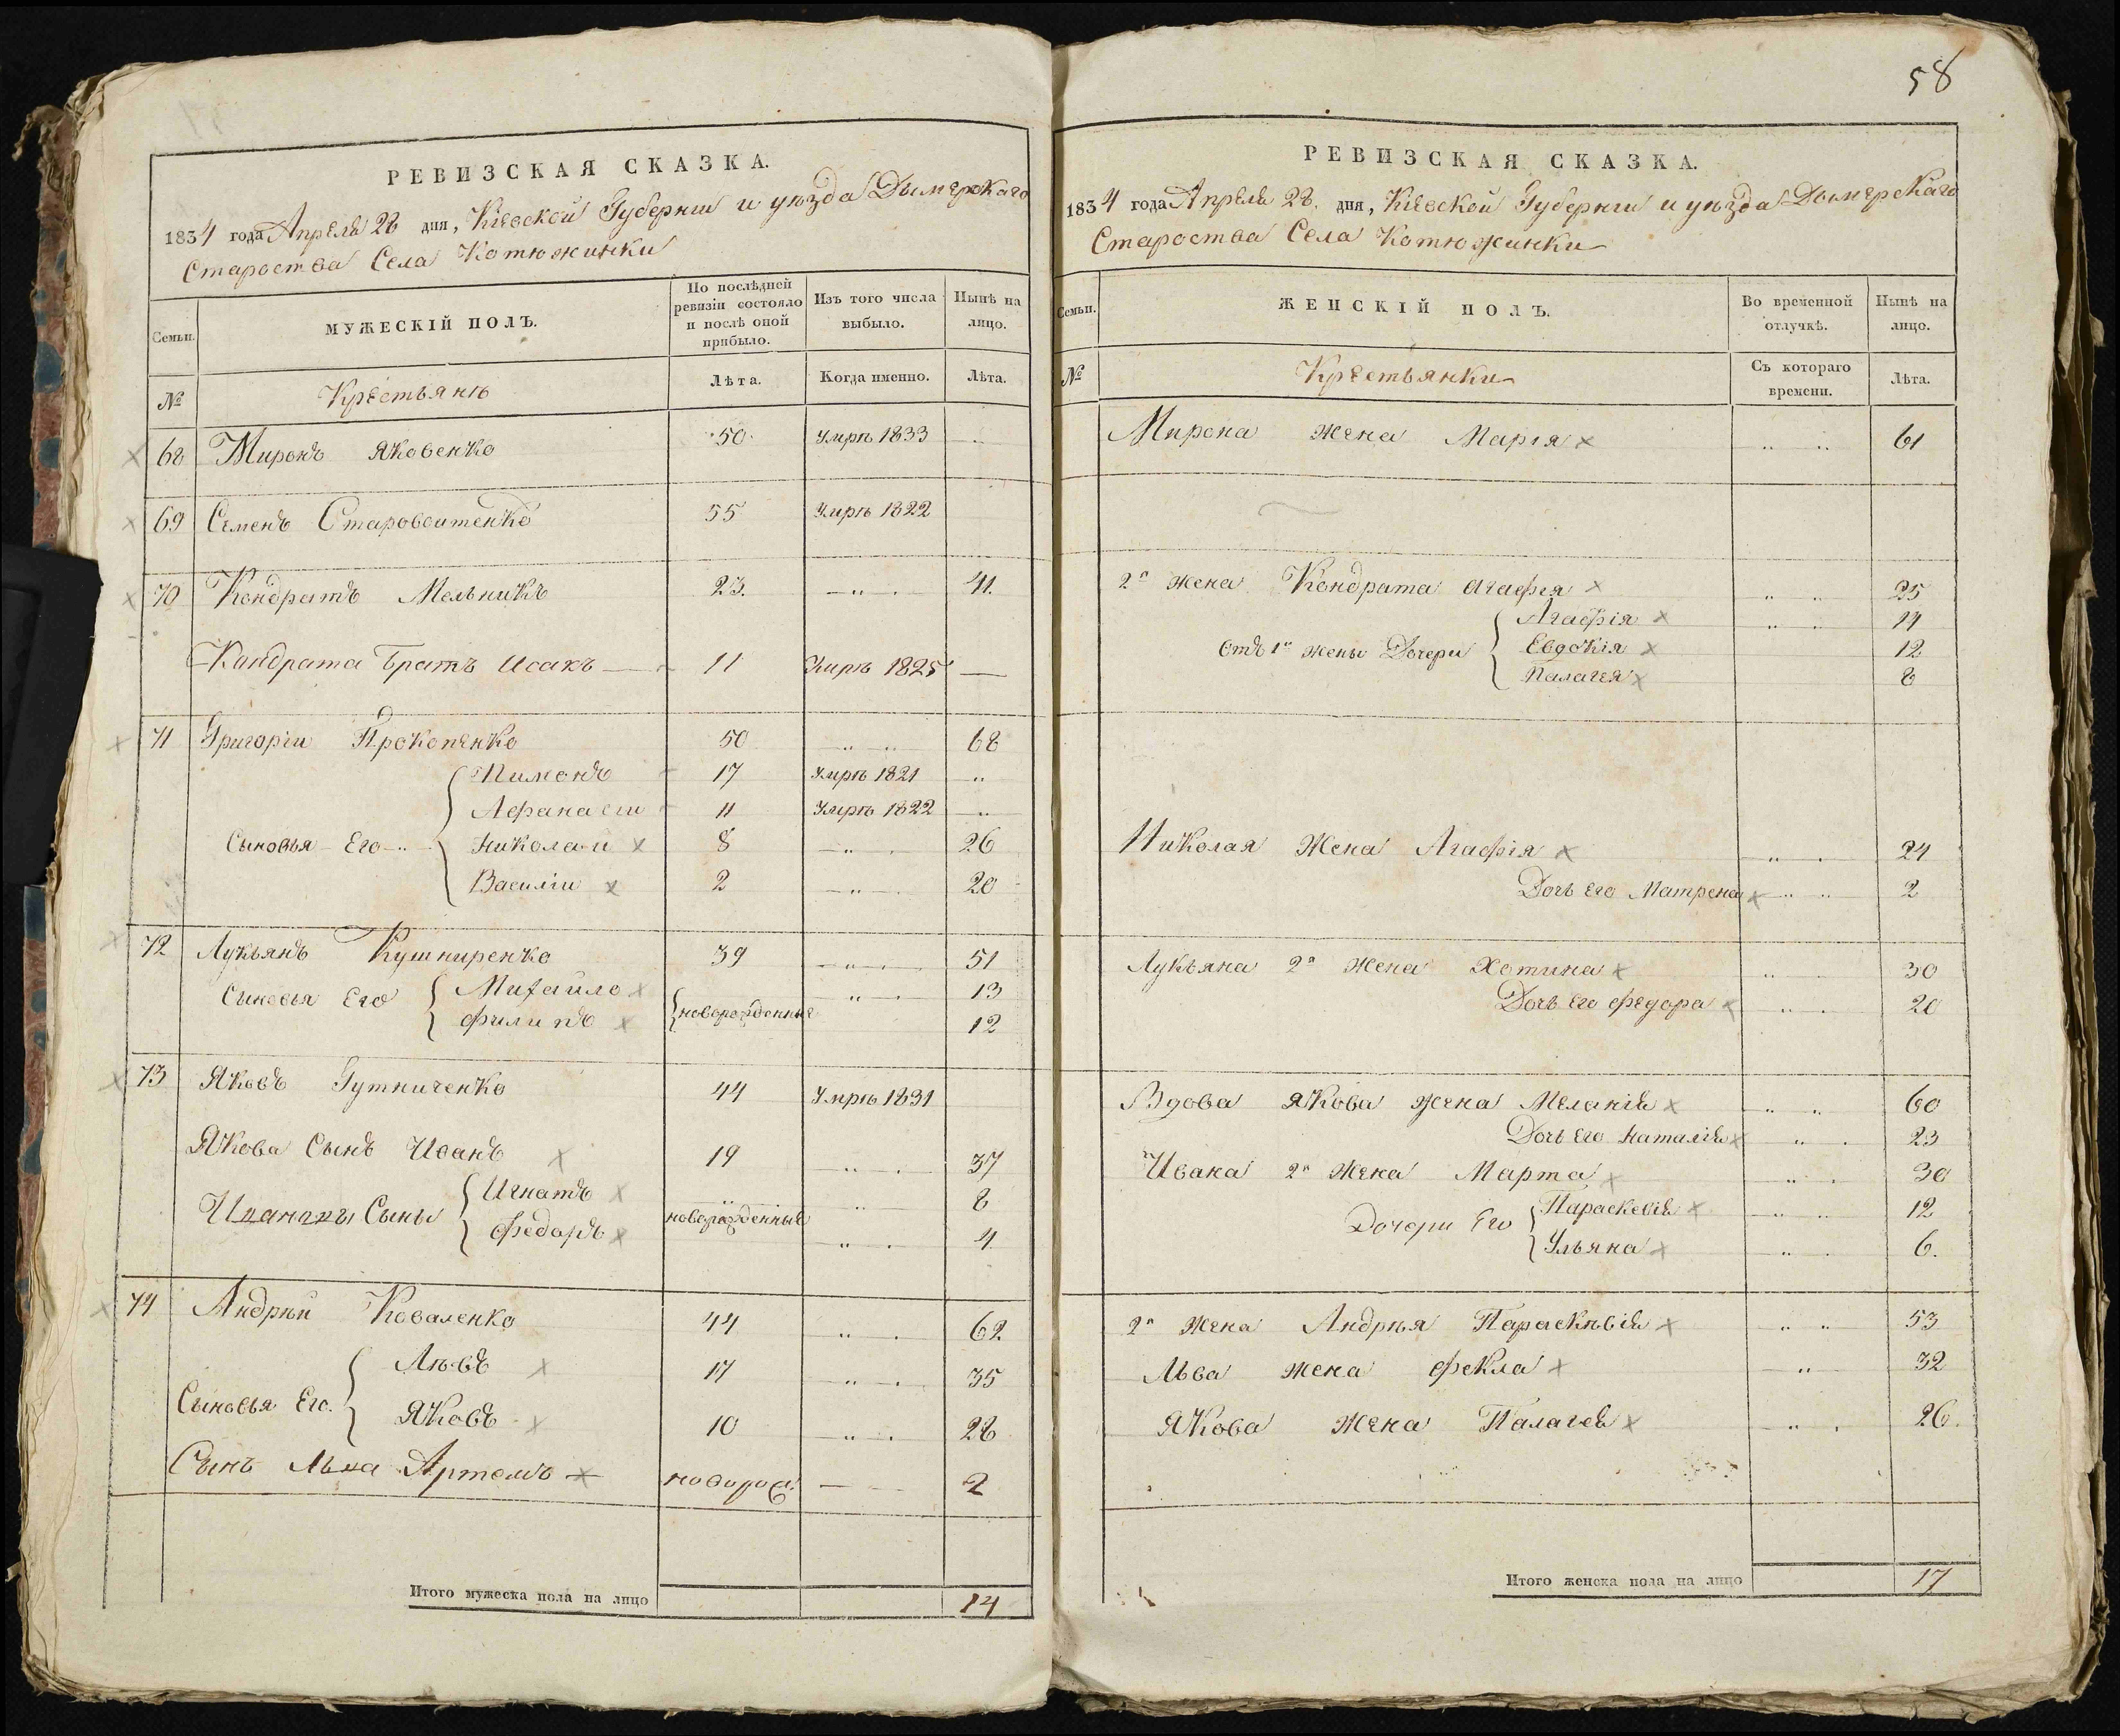 РЕВИЗСКАЯ СКАЗКА.
1834 года Апреля 28 дня, Кіевской Губерніи и уѣзда Дымерскаго
Староства Села Котюжинки
Семьи. МУЖЕСКІЙ ПОЛЪ. По послѣдней ревизіи состояло и послѣ оной прибыло. Изъ того числа выбыло. Нынѣ на лицо.
№ Крестьянѣ Лѣта. Когда именно. Лѣта.
68 Миронъ Яковенко 50 Умрѣ 1833
69 Семенъ Старовойтенко 55 Умрѣ 1822
70 Кондратъ Мельникъ 23. 41.
Кондрата Братъ Исакъ 11 Умрѣ 1825
71 Григоріи Прокопенко 50 68
Пименъ 17 Умрѣ 1821
Афанасіи 11 Умрѣ 1822
Сыновья Его Николай 8 26
Василіи 2 20
72 Лукьянъ Кушниренко 39 51
Сыновья Его Михайло новорожденные 13
Филипъ 12
73 Яковъ Гутниченко 44 Умрѣ 1831
Якова Сынъ Иванъ 19 37
Игнатъ 8
Ивановы Сыны новорожденные
Федоръ 4
74 Андрѣй Коваленко 44 62
Лѣвъ 17 35
Сыновья Его.
Яковъ 10 28
Сынъ Льва Артемъ новорож. 2
Итого мужеска пола на лицо 14
58
РЕВИЗСКАЯ СКАЗКА.
1834 года Апрѣля 28. дня, Кіевской Губерніи и уѣзда Дымерскаго
Староства Села Котюжинки
Семьи. ЖЕНСКІЙ ПОЛЪ. Во временной отлучкѣ. Нынѣ на лицо.
№ Крестьянки Съ котораго времени. Лѣта.
Мирона жена Марія 61
2я жена Кондрата Агафия 25
Агафія 14
Отъ 1й жены Дочери Евдокія 12
Палагея 8
Николая Жена Агафія 24
Дочь Его Матрена 2
Лукьяна 2я жена Хотина 30
Дочь Его Федора 20
Вдова Якова жена Меланія 60
Дочь Его Наталія 23
Ивана 2я жена Марта 30
Дочери Его Параскевія 12
Ульяна 6.
2я жена Андрѣя Параскѣвія 53
Льва жена Фекла 32
Якова жена Палагея 26.
Итого женска пола на лицо 17